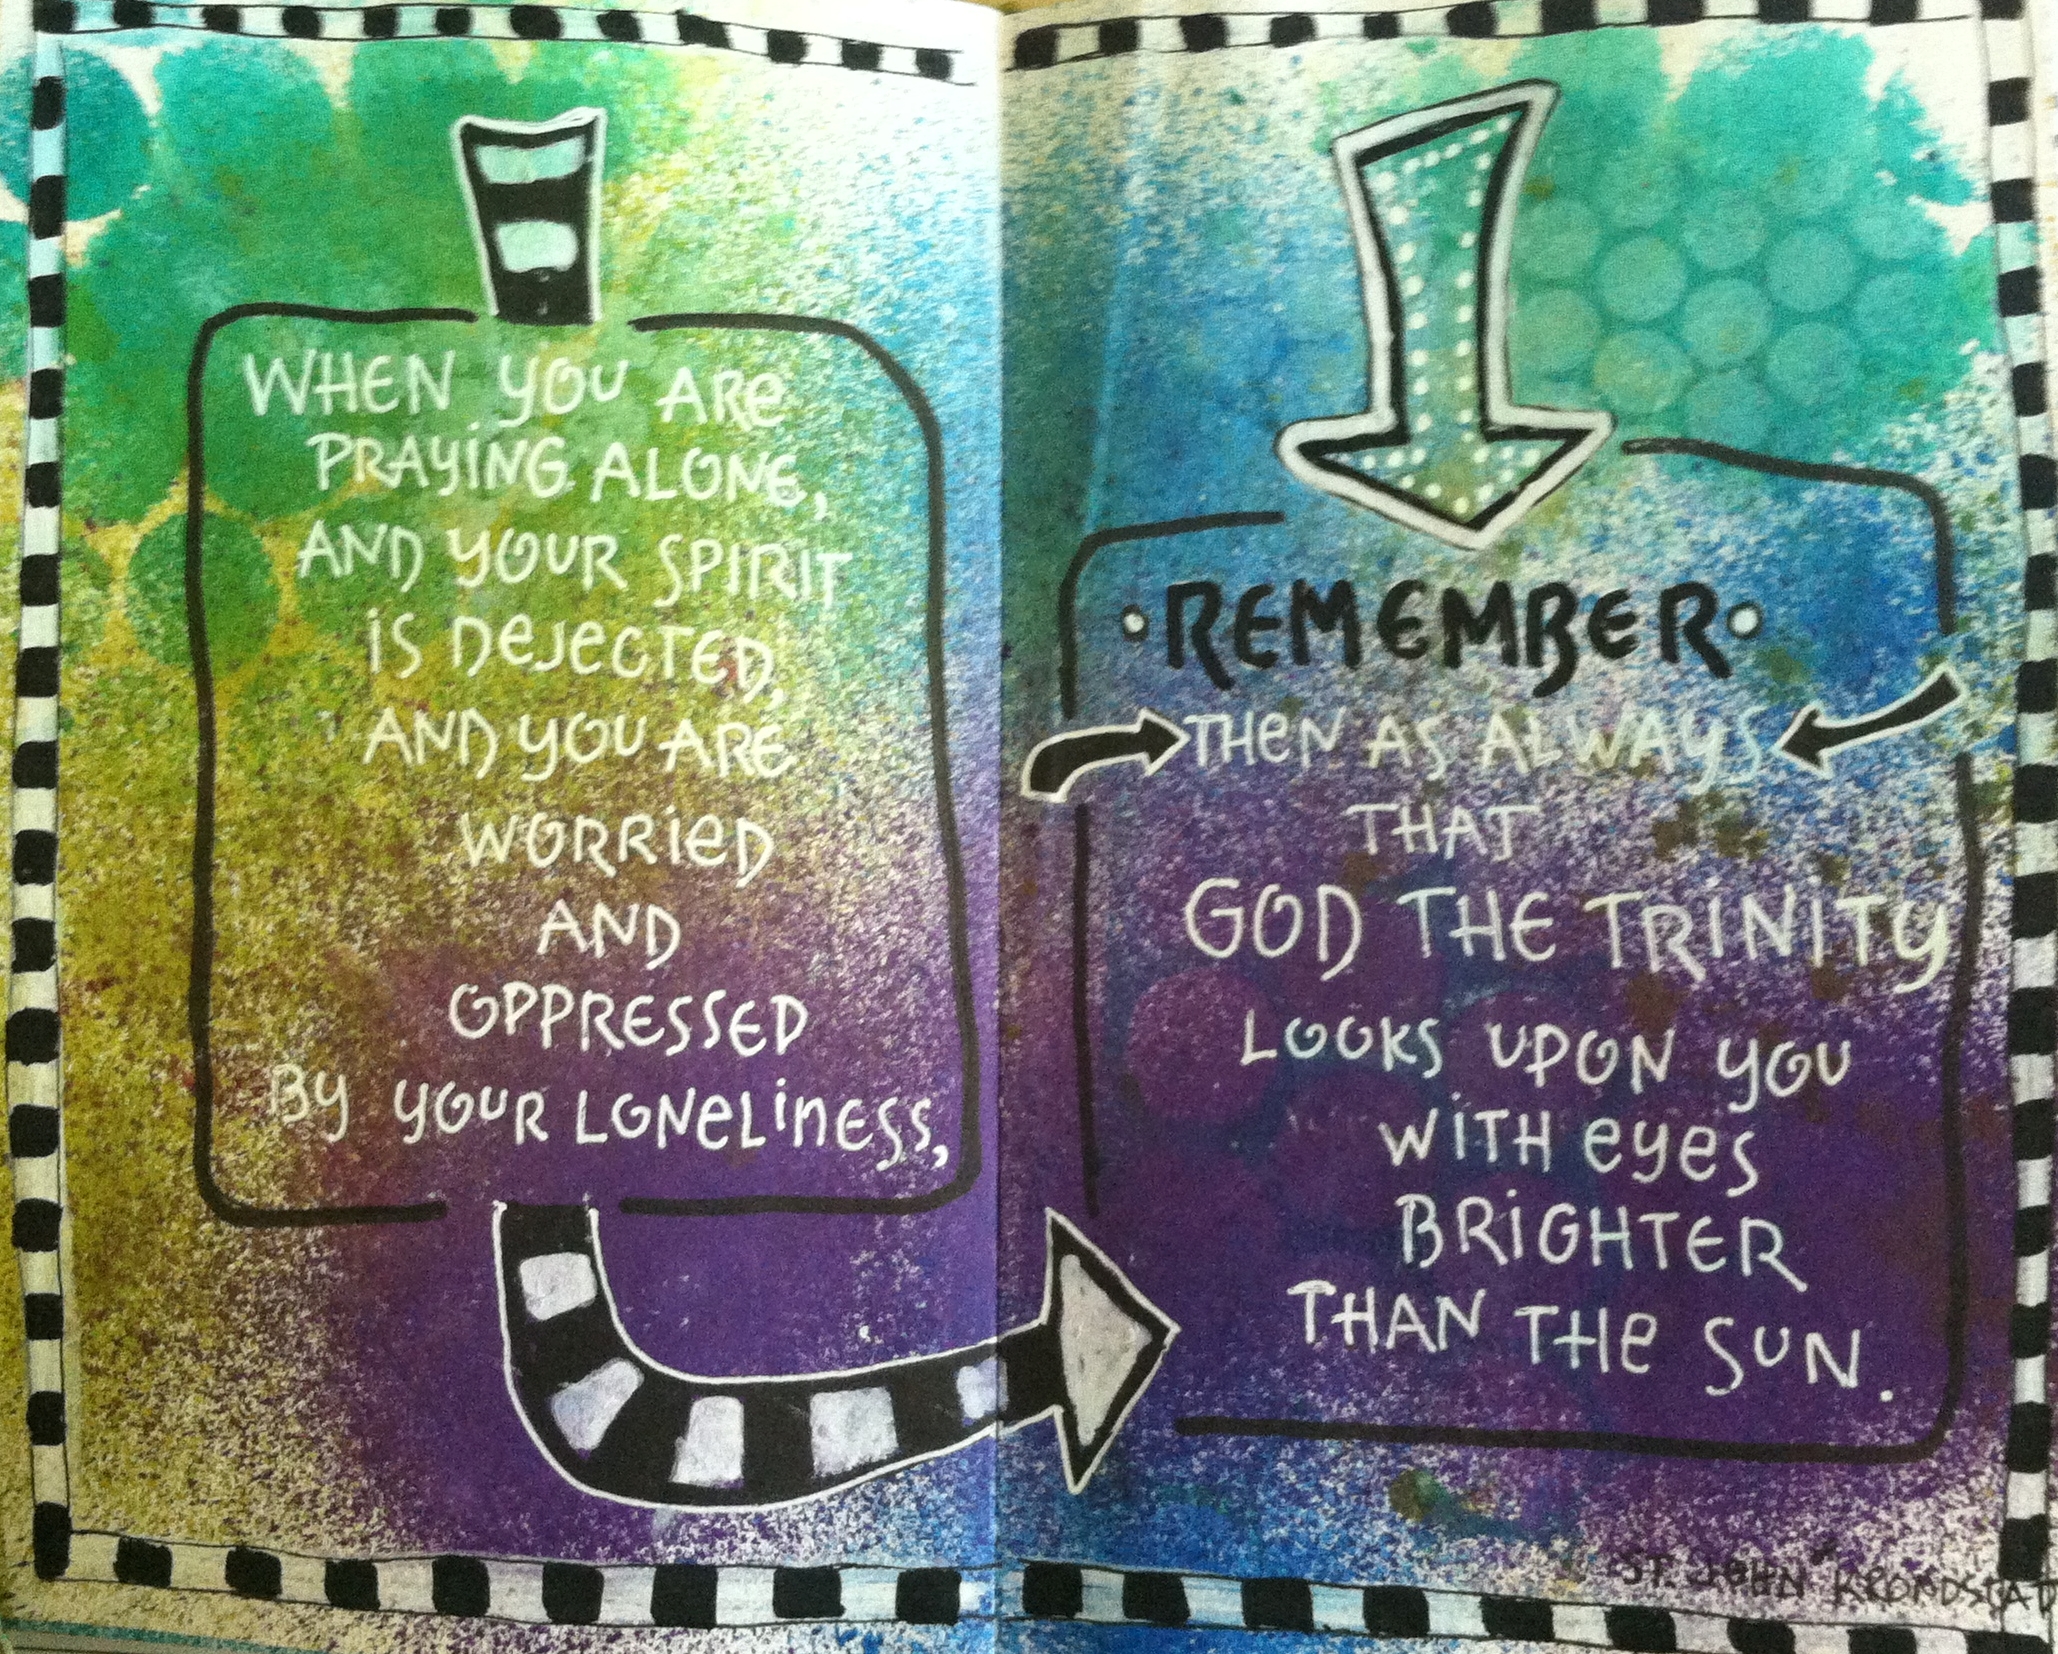 WHEN YOU ARE
PRAYING ALONE,
AND YOUR SPIRIT
IS DEJECTED,
AND YOU ARE
WORRIED
AND
OPPRESSED
BY YOUR LONELINESS,
•REMEMBER•
THEN AS ALWAYS
THAT
GOD THE TRINITY
LOOKS UPON YOU
WITH EYES
BRIGHTER
THAN THE SUN.
ST. JOHN KRONDSTAD